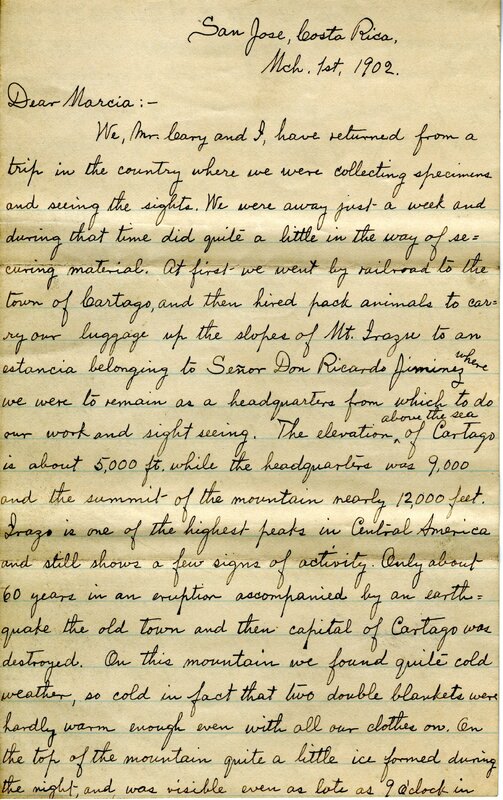 San Jose, Costa Rica,
Mch. 1st, 1902.
Dear Marcia:-
We, Mr. Cary and I, have returned from a
trip in the country where we were collecting specimens
and seeing the sights. We were away just a week and
during that time did quite a little in the way of se=
curing material. At first we went by railroad to the
town of Cartago, and then hired pack animals to car=
ry our luggage up the slopes of Mt. Irazu to an
estancia belonging to Señor Don Ricardo Jiminez where
we were to remain as a headquarters from which to do
our work and sight seeing. The elevation above the sea of Cartago
is about 5,000 ft. while the headquarters was 9,000
and the summit of the mountain nearly 12,000 feet.
Irazo is one of the highest peaks in Central America
and still shows a few signs of activity. Only about
60 years in an eruption accompanied by an earth=
quake the old town and then capital of Cartago was
destroyed. On this mountain we found quite cold
weather, so cold in fact that two double blankets were
hardly warm enough even with all our clothes on. On
the top of the mountain quite a little ice formed during
the night, and was visible even as late as 9 o'clock in